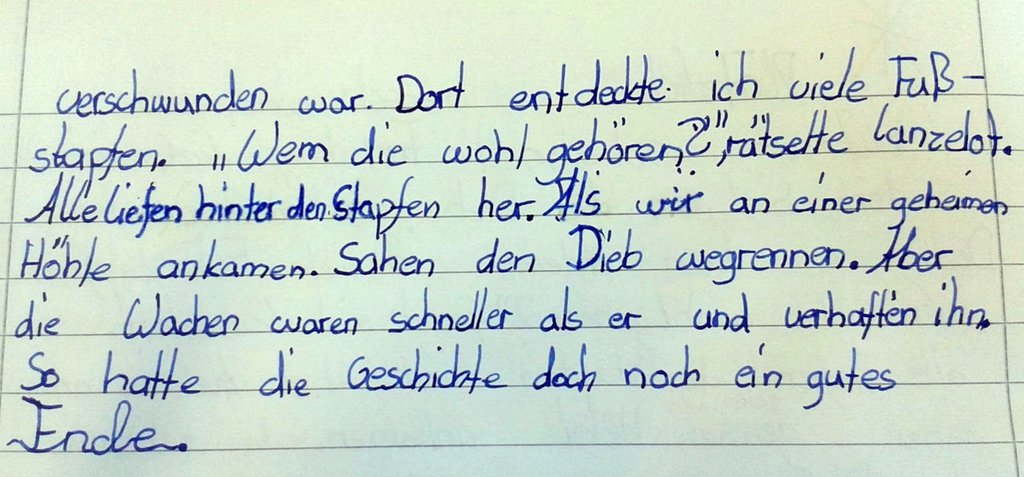 verschwunden war. Dort entdeckte ich viele Fuß-
stapfen. „Wem die wohl gehören?", rätselte Lanzelot.
Alle liefen hinter den Stapfen her. Als wir an einer geheimen
Höhle ankamen. Sahen den Dieb wegrennen. Aber
die Wachen waren schneller als er und verhaften ihn.
So hatte die Geschichte doch noch ein gutes
Ende.